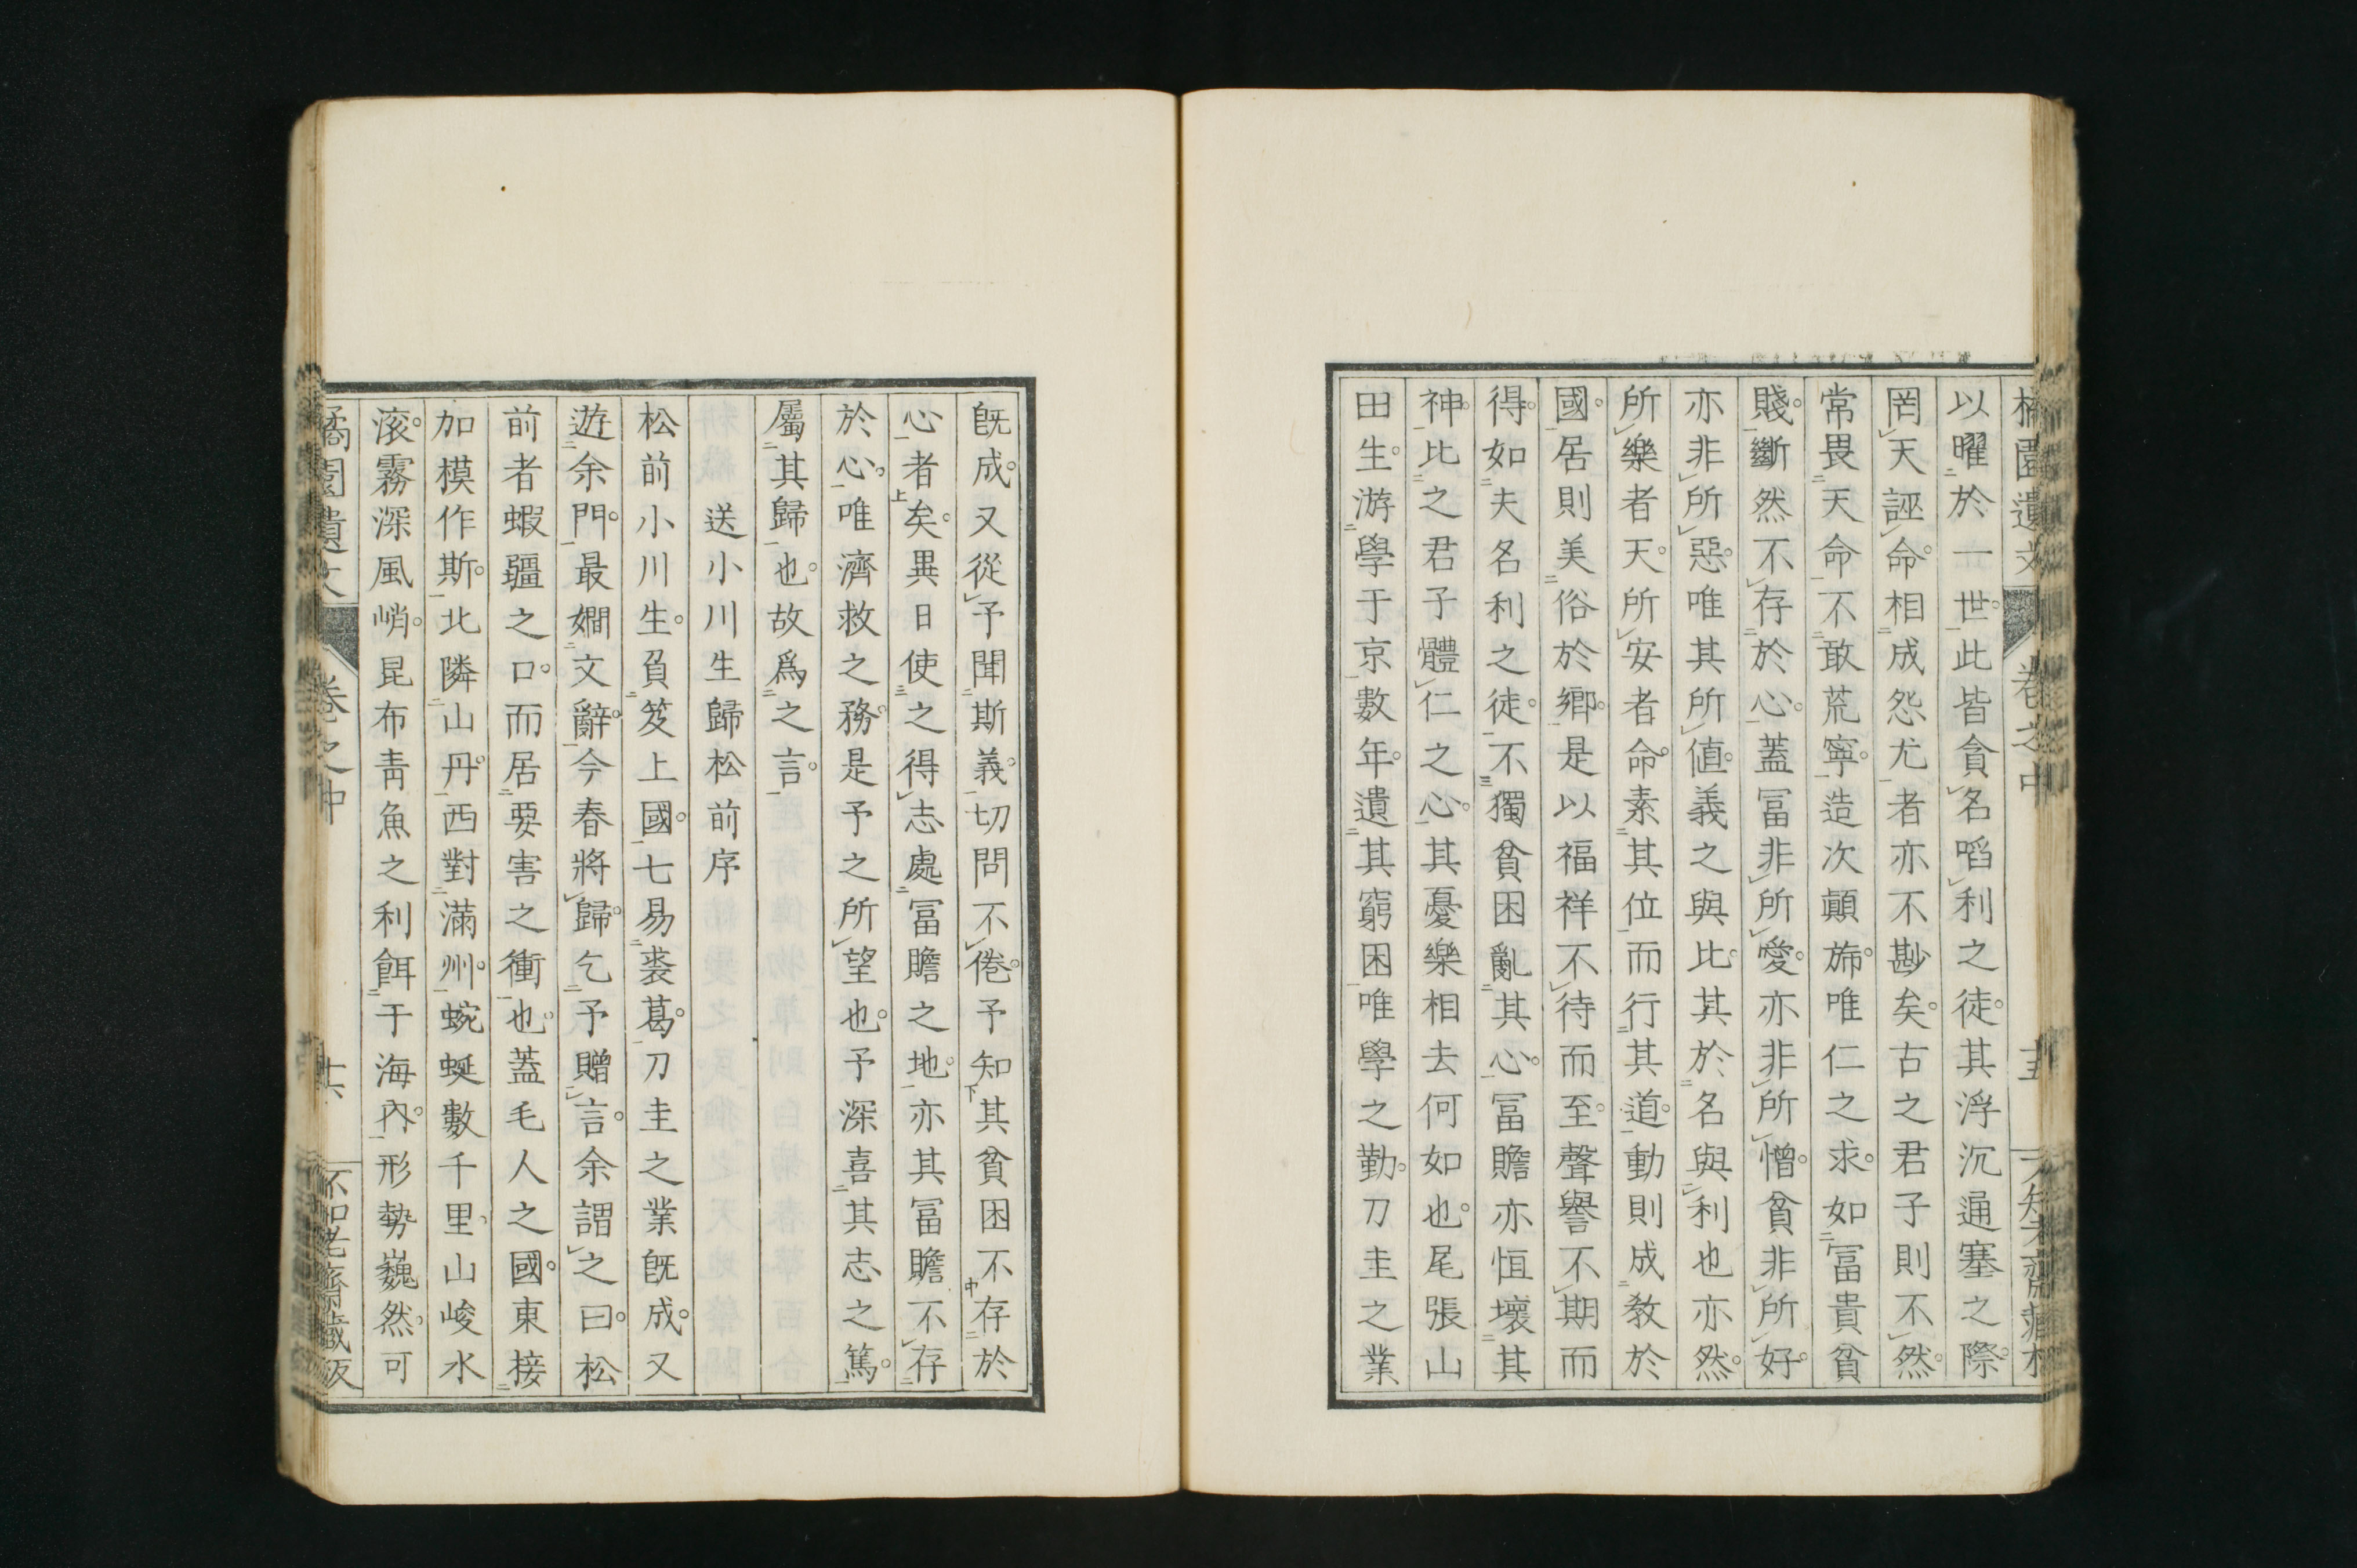 以曜於一世。此皆貪名啗利之徒。其浮沉通塞之際。
罔天誣命。相成怨尤者亦不尠矣。古之君子則不然。
常畏天命不敢荒寧。造次顚斾。唯仁之求。如冨貴貧
賤。斷然不存於心。蓋冨非所愛。亦非所憎。貧非所好。
亦非所惡。唯其所値。義之與比。其於名與利也亦然。
所樂者天。所安者命。素其位而行其道。動則成教於
國。居則美俗於鄉。是以福祥不待而至。聲譽不期而
得。如夫名利之徒。不獨貧困亂其心。冨贍亦恒壞其
神。比之君子體仁之心。其憂樂相去何如也。尾張山
田生。游學于京數年。遺其窮困唯學之勤。刀圭之業
既成。又從予聞斯義。切問不倦。予知其貧困不存於
心者矣。異日使之得志處冨贍之地。亦其冨贍不存
於心。唯濟救之務。是予之所望也。予深喜其志之篤。
屬其歸也。故爲之言。
送小川生歸松前序
松前小川生。負笈上國。七易裘葛。刀圭之業既成。又
遊余門。最嫺文辭。今春將歸。乞予贈言。余謂之曰。松
前者蝦疆之口。而居要害之衝也。蓋毛人之國。東接
加模作斯。北隣山丹。西對滿州。蜿蜒數千里、山峻水
滚。霧深風峭。昆布靑魚之利餌于海內。形勢巍然、可
橘園遺文
卷之中
十六
不知老齋藏板